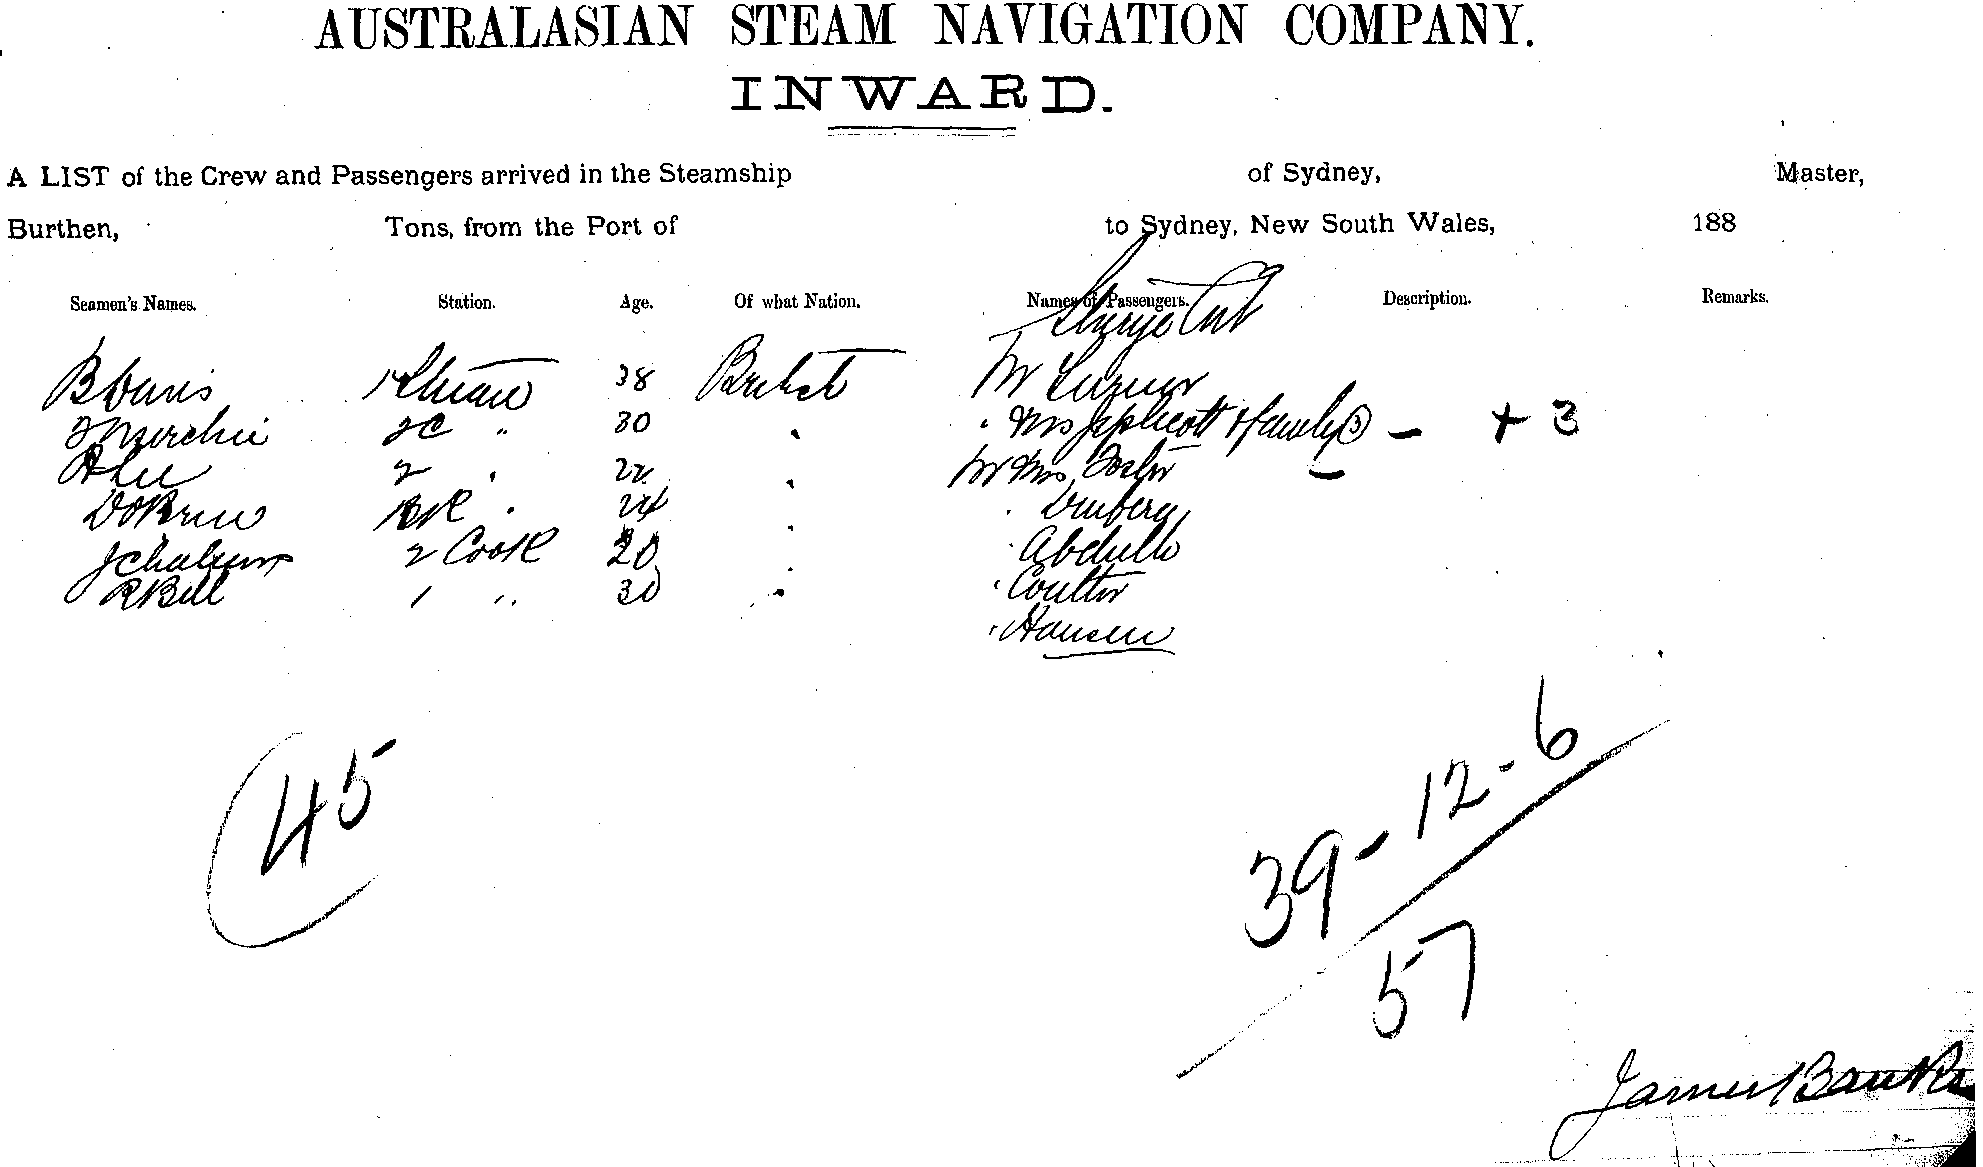 AUSTRALASIAN STEAM NAVIGATION COMPANY.
INWARD.
A LIST of the Crew and Passengers arrived in the Steamship of Sydney, Master,
Burthen, Tons, from the Port of to Sydney, New South Wales, 188
Seamen's Names. Station. Age. Of what Nation. Names of Passengers. Description. Remarks.
B Davis 38 British Mr Turner
30 " Mrs Jephcott & family (3) — + 3
A Lee 2 " 22 " Mr Mrs Foster —
D O'Brien " 24 "
2 Cook 20 " Abdulla
R Bell 1 " 30 " " Coulter
" Hansen
45
39-12-6
57
James Banks